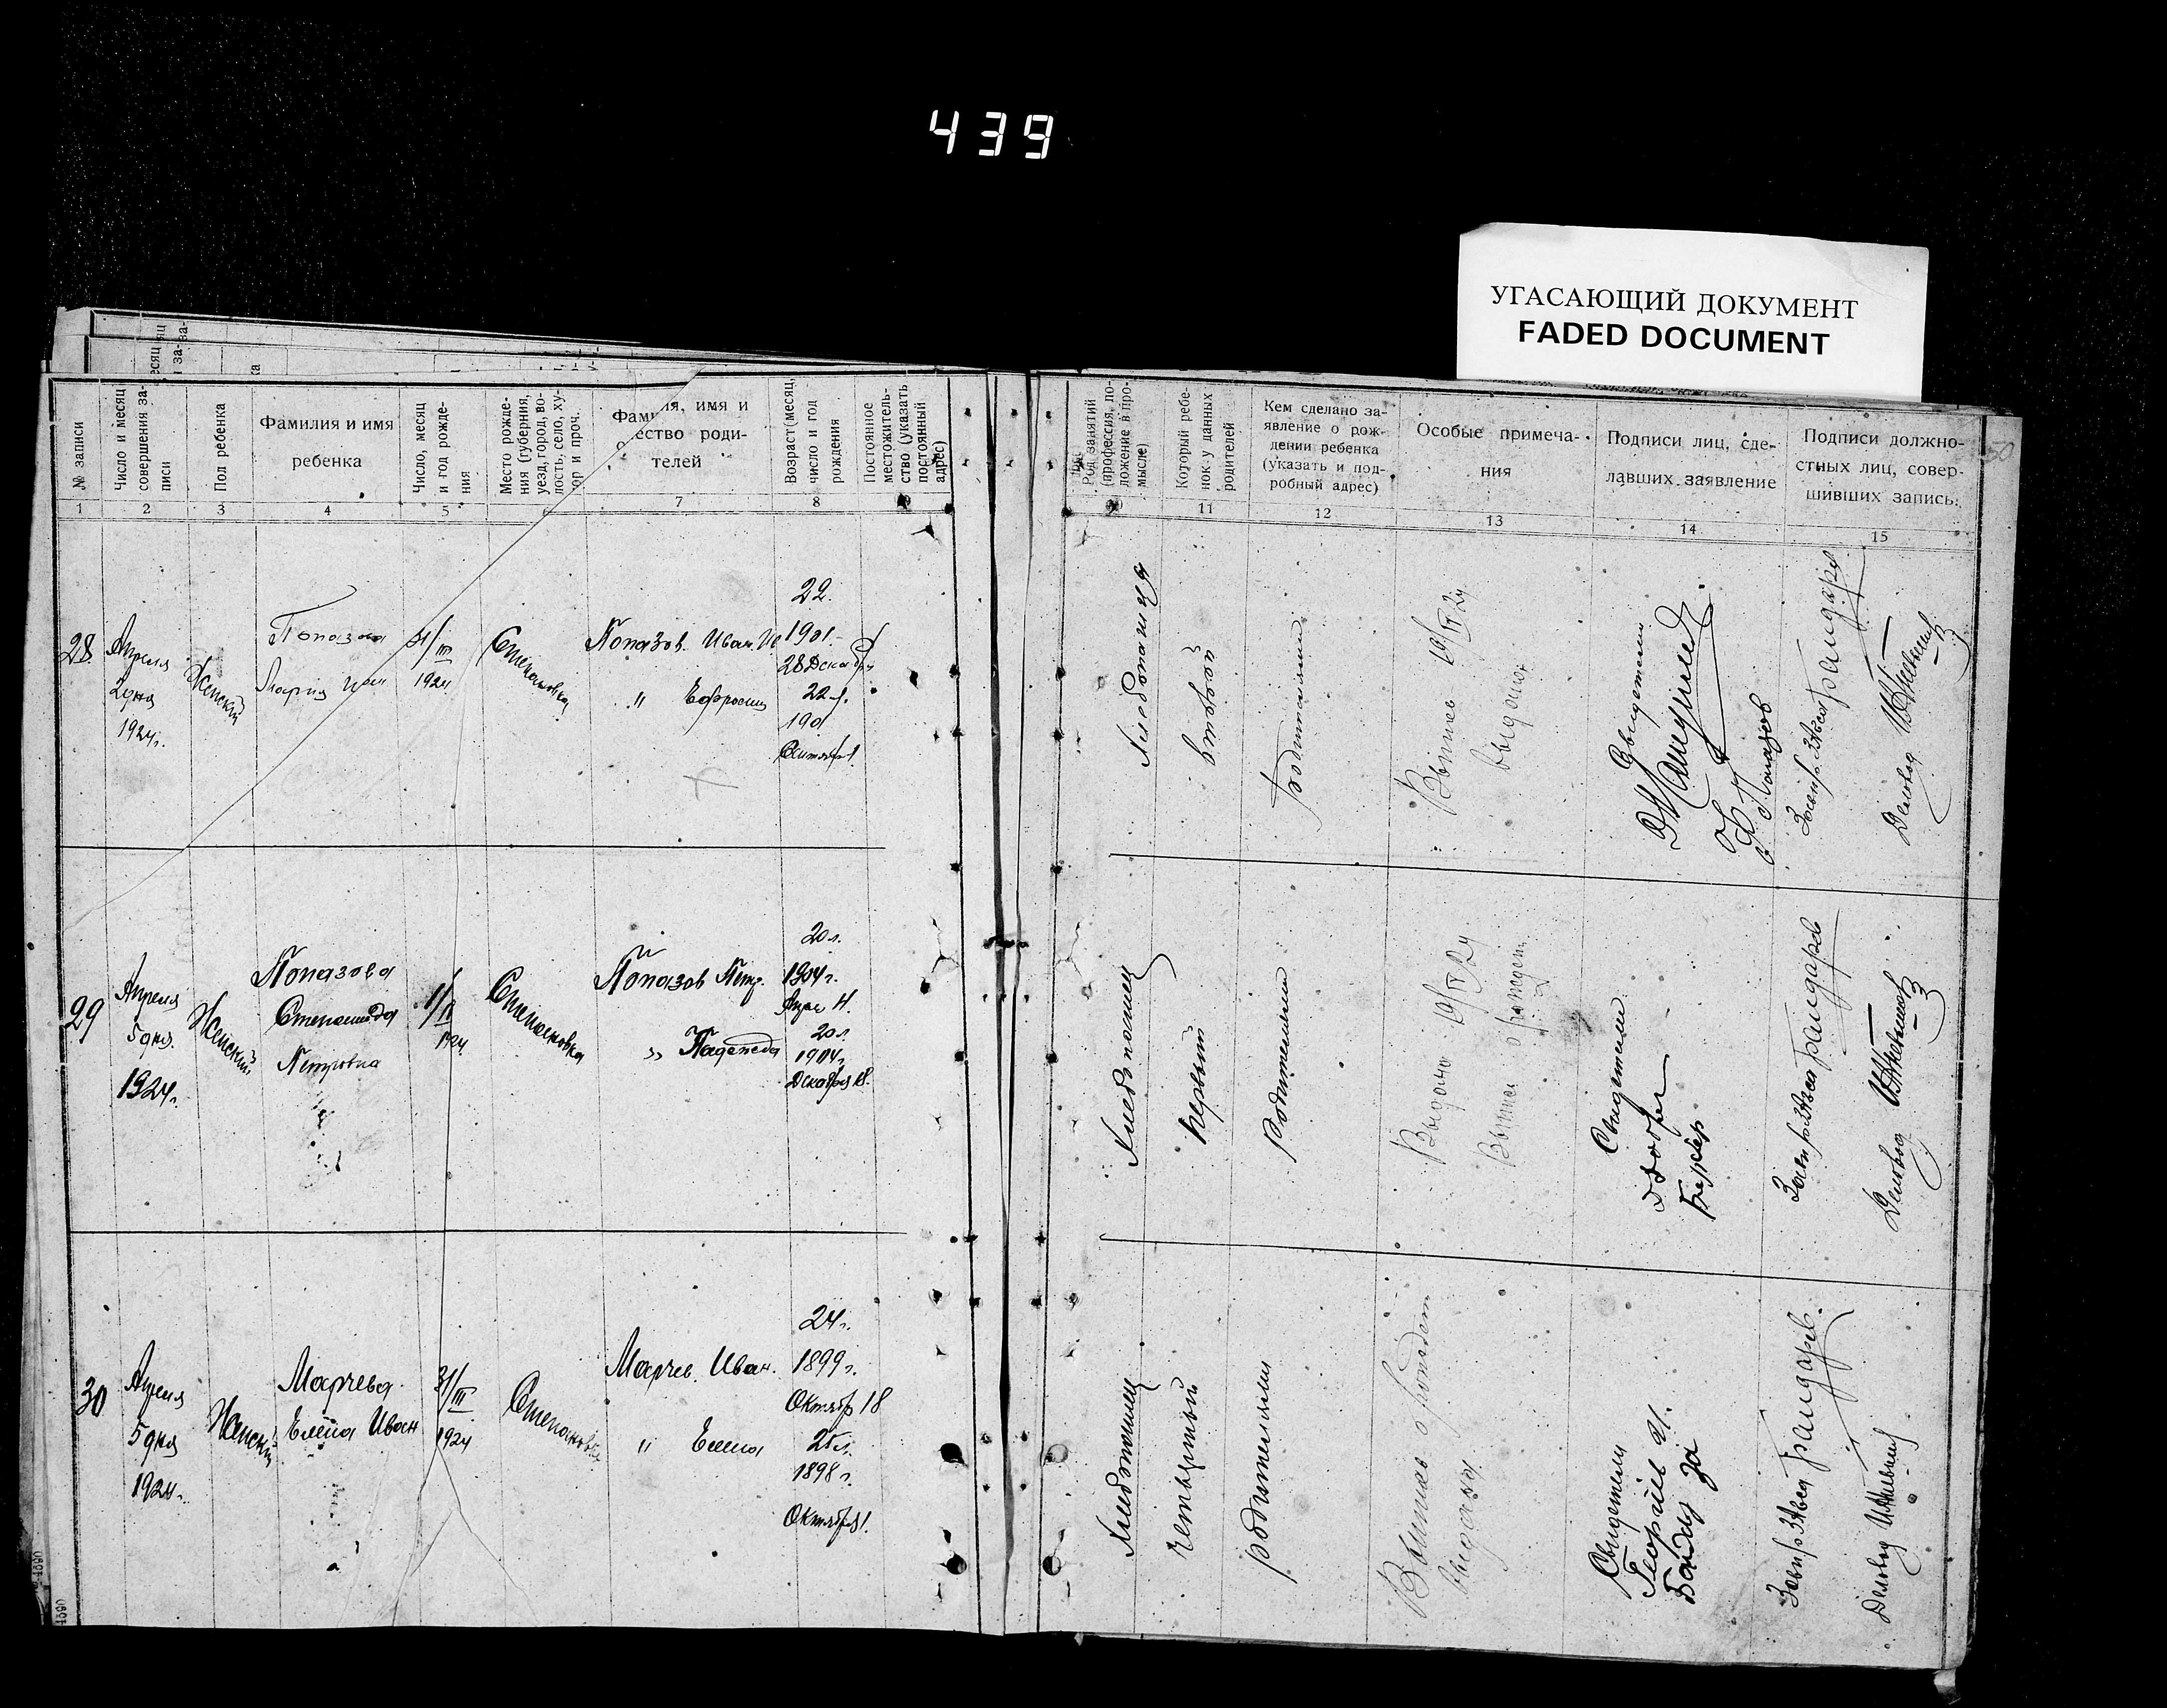 439
УГАСАЮЩИЙ ДОКУМЕНТ
FADED DOCUMENT
№ записи
Число и месяц
совершения за-
писи
Пол ребенка
Фамилия и имя
ребенка
Число, месяц
и год рожде-
ния
Место рожде-
ния (губерния,
уезд, город, во-
лость, село, ху-
тор и проч.
Фамилия, имя и
отчество роди-
телей
Возраст (месяц,
число и год
рождения
Постоянное
местожитель-
ство (указать
постоянный
адрес)
Род занятий
(профессия, по-
ложение в про-
мысле)
Который ребе-
нок у данных
родителей
Кем сделано за-
явление о рож-
дении ребенка
(указать и под-
робный адрес)
Особые примеча-
ния
Подписи лиц, сде-
лавших заявление
Подписи должно-
стных лиц, совер-
шивших запись.
1 2 3 4 5 6 7 8 9 10 11 12 13 14 15
28
Апреля
2 дня
1924 г.
Женский
Попазова
Мария Иван
31/III
1924
Степановка
Попазов. Иван. Ив
" Ефросин
22.
1901
28 Декабр
22 л.
190
хлебопашец
второй
родители
19/IV 24
выдана
Свидетели
Попазов
Делопр
29
Апреля
5 дня.
1924 г.
Женский
Попазова
Степанида
Петровна
1/IV
1924
Степановка
Попазов Петр.
" Надежда
20 л.
1904 г.
20 л.
1904 г.
Декабря 18.
Хлебопашец
первый
Родители
Выдана 19/IV 24
Свидетели
30
Апреля
5 дня
1924 г.
Женский
Марчева
Елена Иван
31/III
1924
Степановка
Марчев. Иван.
" Елена
24 г.
1899 г.
Октябр 18
25 л.
1898 г.
Октября 1.
Хлебопашец
четвертый
родители
Выпись о рожден
выдана
Свидетели
Георгий И.